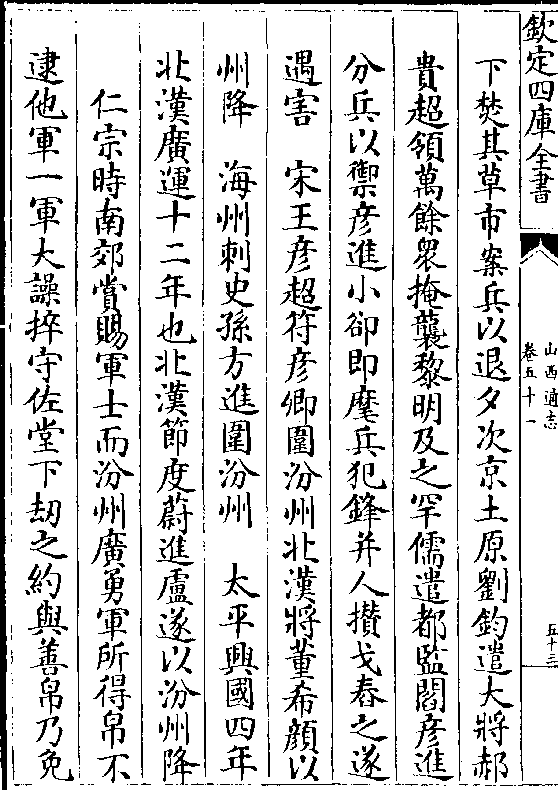 欽定四庫全書
山西通志
卷五十一
五十三
下焚其草市案兵以退夕次京土原劉鈞遣大將郝
貴超領萬餘衆掩襲黎明及之罕儒遣都監閻彦進
分兵以禦彦進小卻即麾兵犯鋒并人攅戈舂之遂
遇害　宋王彦超符彦卿圍汾州北漢將董希顔以
州降　海州刺史孫方進圍汾州　太平興國四年
北漢廣運十二年也北漢節度蔚進盧遂以汾州降
仁宗時南郊賞賜軍士而汾州廣勇軍所得帛不
逮他軍一軍大譟捽守佐堂下刼之約與善帛乃免